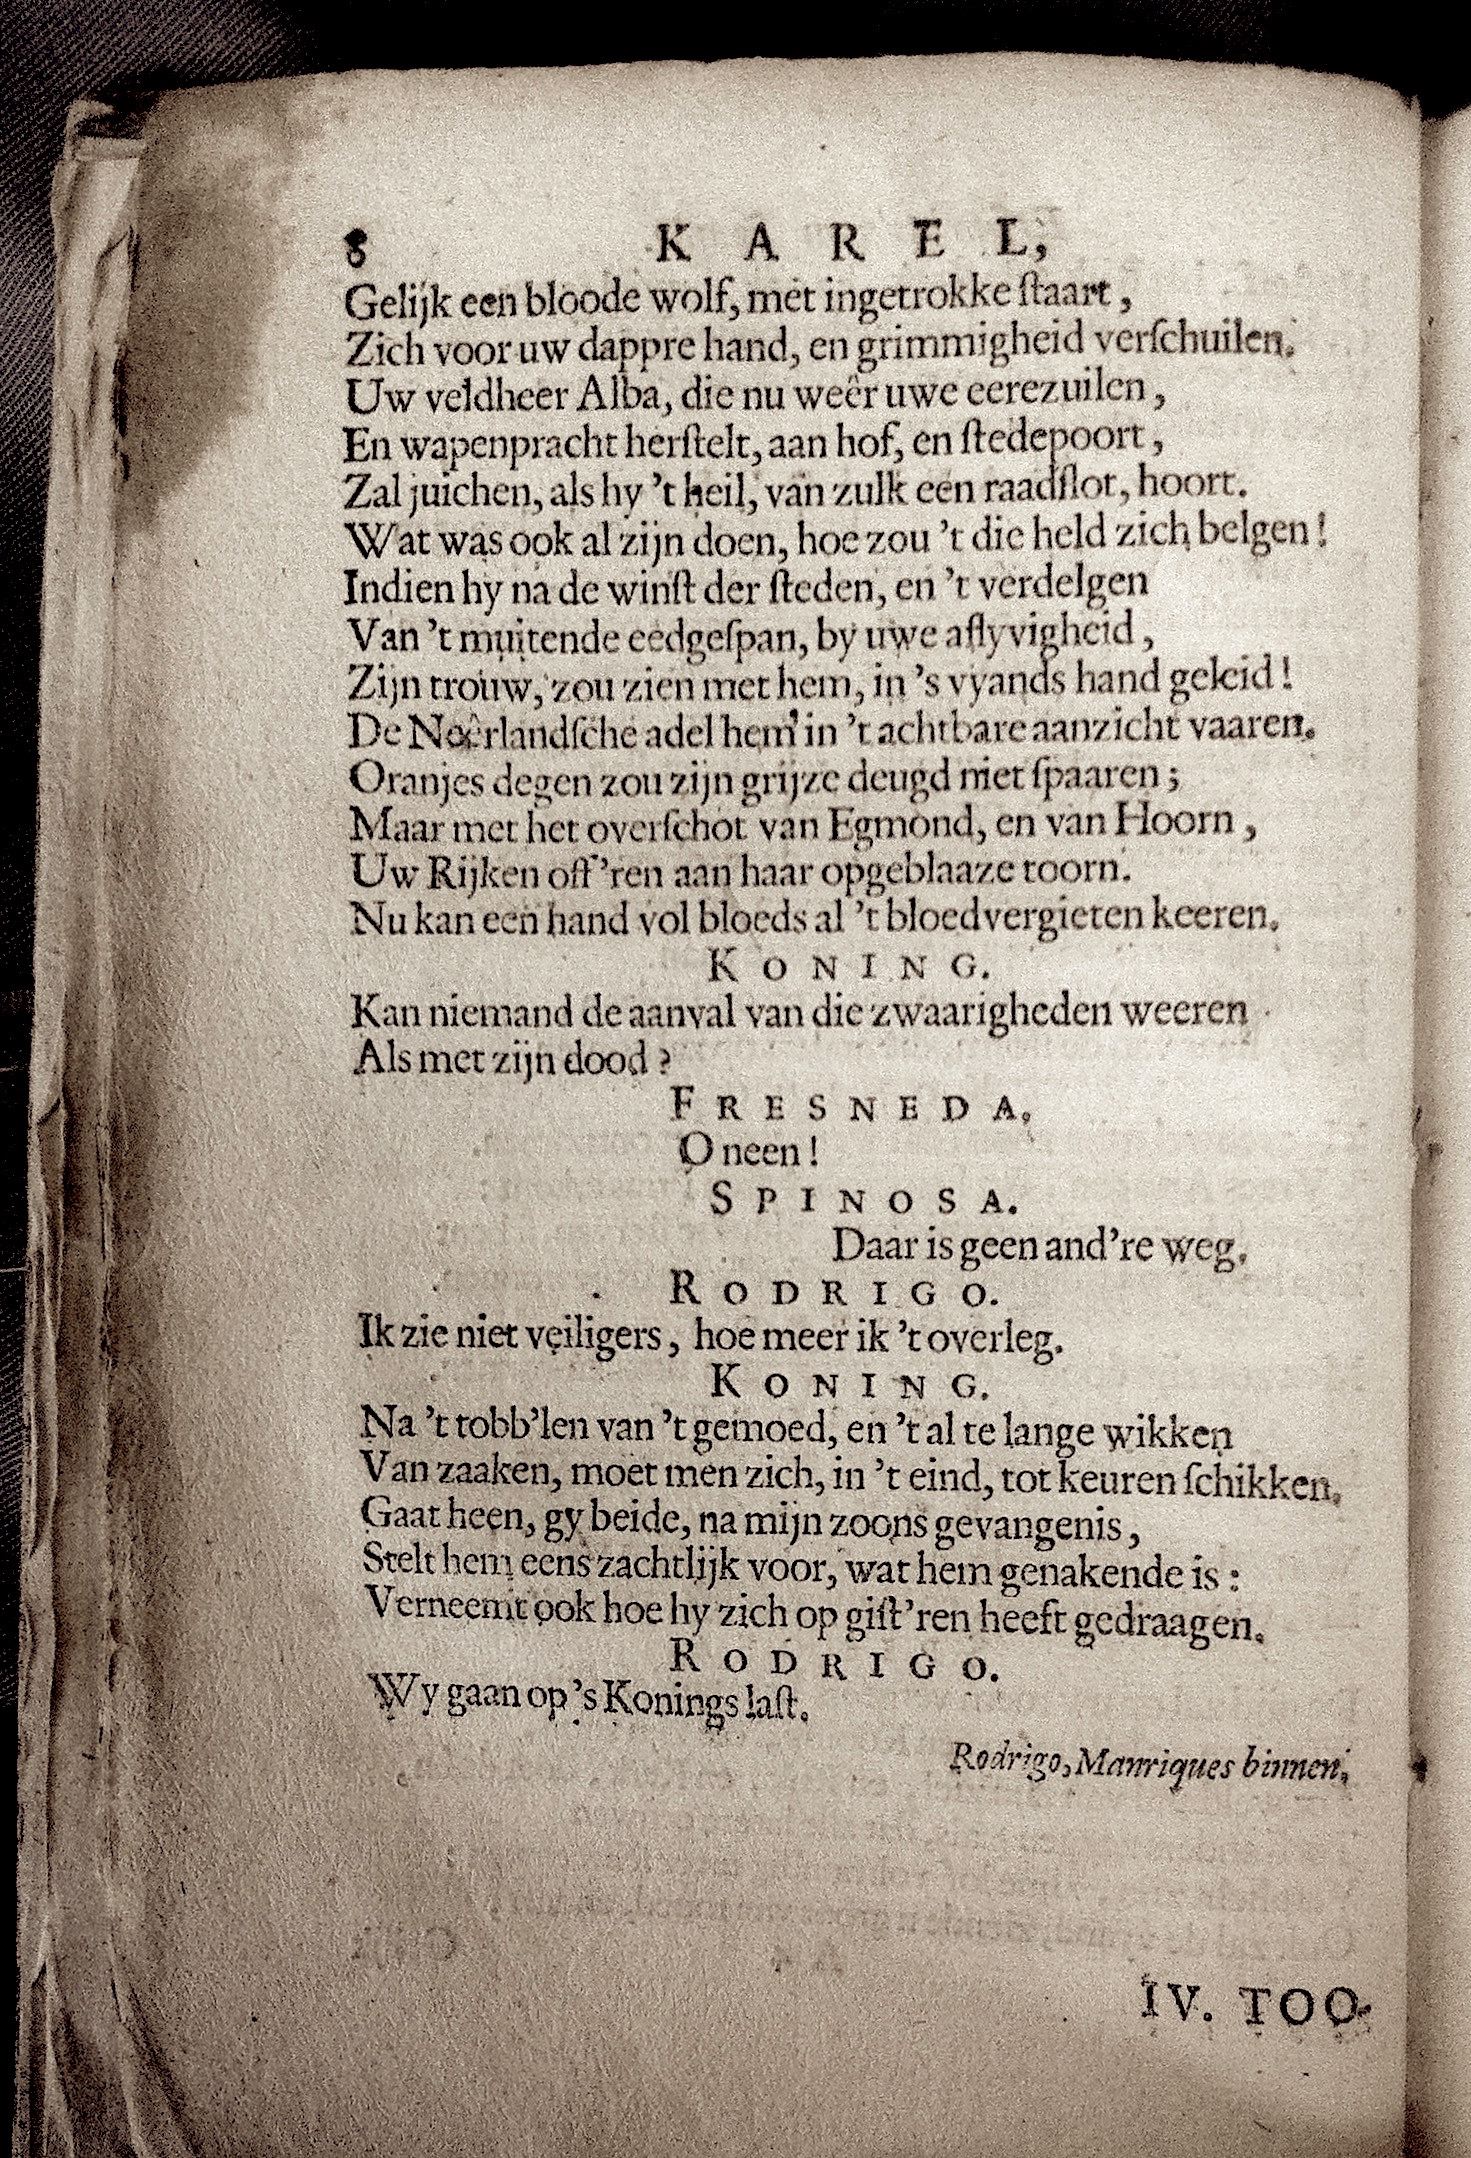 8 KAREL,
Gelijk een bloode wolf, met ingetrokke ſtaart,
Zich voor uw dappre hand, en grimmigheid verſchuilen.
Uw veldheer Alba, die nu weêr uwe eerezuilen,
En wapenpracht herſtelt, aan hof, en ſtedepoort,
Zal juichen, als hy 't heil, van zulk een raadſlot, hoort.
Wat was ook al zijn doen, hoe zou 't die held zich belgen!
Indien hy na de winſt der ſteden, en 't verdelgen
Van 't muitende eedgeſpan, by uwe aflyvigheid,
Zijn trouw, zou zien met hem, in 's vyands hand geleid!
De Neêrlandſche adel hem in 't achtbare aanzicht vaaren.
Oranjes degen zou zijn grijze deugd niet ſpaaren;
Maar met het overſchot van Egmond, en van Hoorn,
Uw Rijken off'ren aan haar opgeblaaze toorn.
Nu kan een hand vol bloeds al 't bloedvergieten keeren.
KONING.
Kan niemand de aanval van die zwaarigheden weeren
Als met zijn dood?
FRESNEDA.
O neen!
SPINOSA.
Daar is geen and're weg.
RODRIGO.
Ik zie niet veiligers, hoe meer ik 't overleg.
KONING.
Na 't tobb'len van 't gemoed, en 't al te lange wikken
Van zaaken, moet men zich, in 't eind, tot keuren ſchikken.
Gaat heen, gy beide, na mijn zoons gevangenis,
Stelt hem eens zachtlijk voor, wat hem genakende is:
Verneemt ook hoe hy zich op giſt'ren heeft gedraagen.
RODRIGO.
Wy gaan op 's Konings laſt.
Rodrigo, Manriques binnen.
IV. TOO-